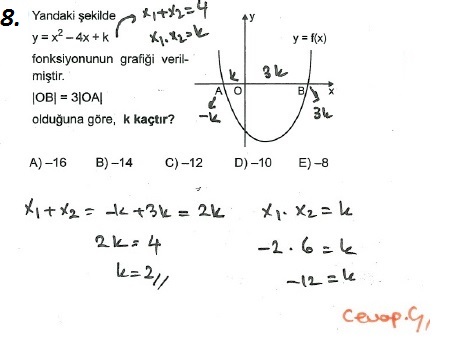 8. Yandaki şekilde
y = x² – 4x + k
x₁+x₂=4
x₁.x₂=k
fonksiyonunun grafiği veril-
miştir.
|OB| = 3|OA|
olduğuna göre, k kaçtır?
y
y = f(x)
k 3k
A O B x
-k 3k
A) –16 B) –14 C) –12 D) –10 E) –8
x₁+x₂ = -k+3k = 2k
2k = 4
k=2//
x₁.x₂ = k
-2.6=k
-12=k
Cevap.C//